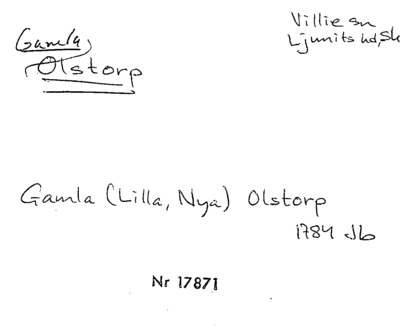 Gamla
Olstorp
Villie sn
Ljunits hd, Sk
Gamla (Lilla, Nya) Olstorp
1784 Jb
Nr 17871